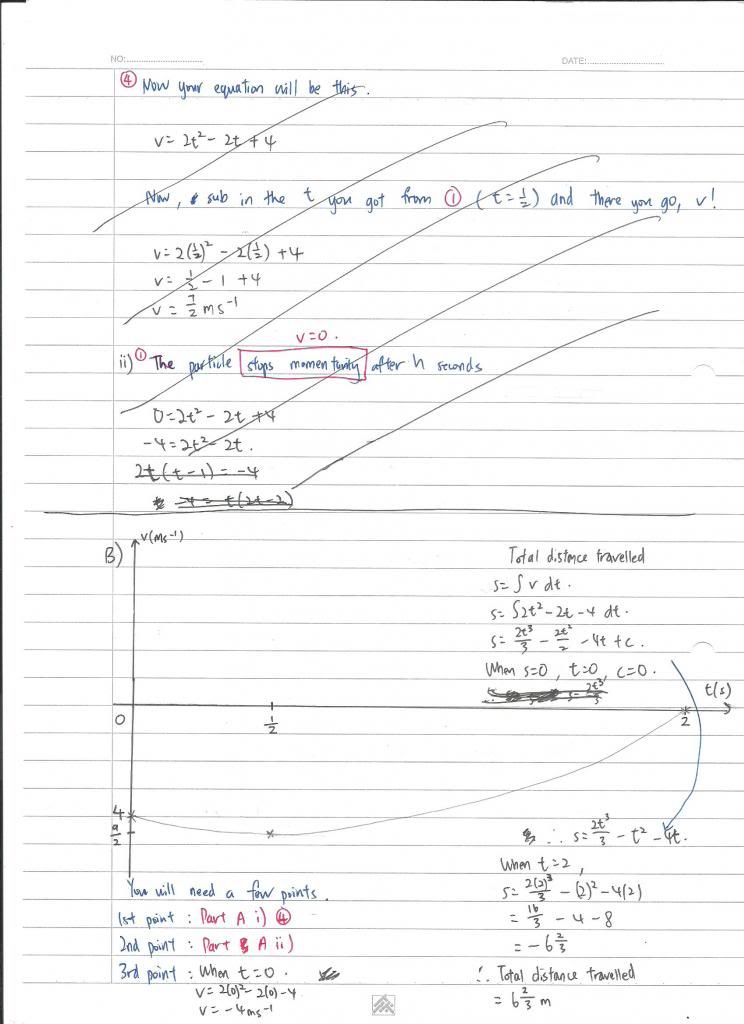 NO:
DATE:
④ Now your equation will be this.
v = 2t² - 2t + 4
Now, sub in the t you got from ① (t = 1/2) and there you go, v!
v = 2(1/2)² - 2(1/2) + 4
v = 1/2 - 1 + 4
v = 7/2 ms⁻¹
v = 0.
ii) ① The particle stops momentarily after h seconds
0 = 2t² - 2t + 4
-4 = 2t² - 2t.
2t(t-1) = -4
-4 = t(2t-2)
B)
v(ms⁻¹)
t(s)
0
1/2
2
4
9/2
Total distance travelled
s = ∫ v dt.
s = ∫ 2t² - 2t - 4 dt.
s = 2t³/3 - 2t²/2 - 4t + c.
When s=0, t=0, c=0.
s = 2t³/3
∴ s = 2t³/3 - t² - 4t.
When t=2,
s = 2(2)³/3 - (2)² - 4(2)
= 16/3 - 4 - 8
= -6 2/3
∴ Total distance travelled
= 6 2/3 m
You will need a few points.
1st point : Part A i) ④
2nd point : Part A ii)
3rd point : When t=0.
v = 2(0)² - 2(0) - 4
v = -4ms⁻¹